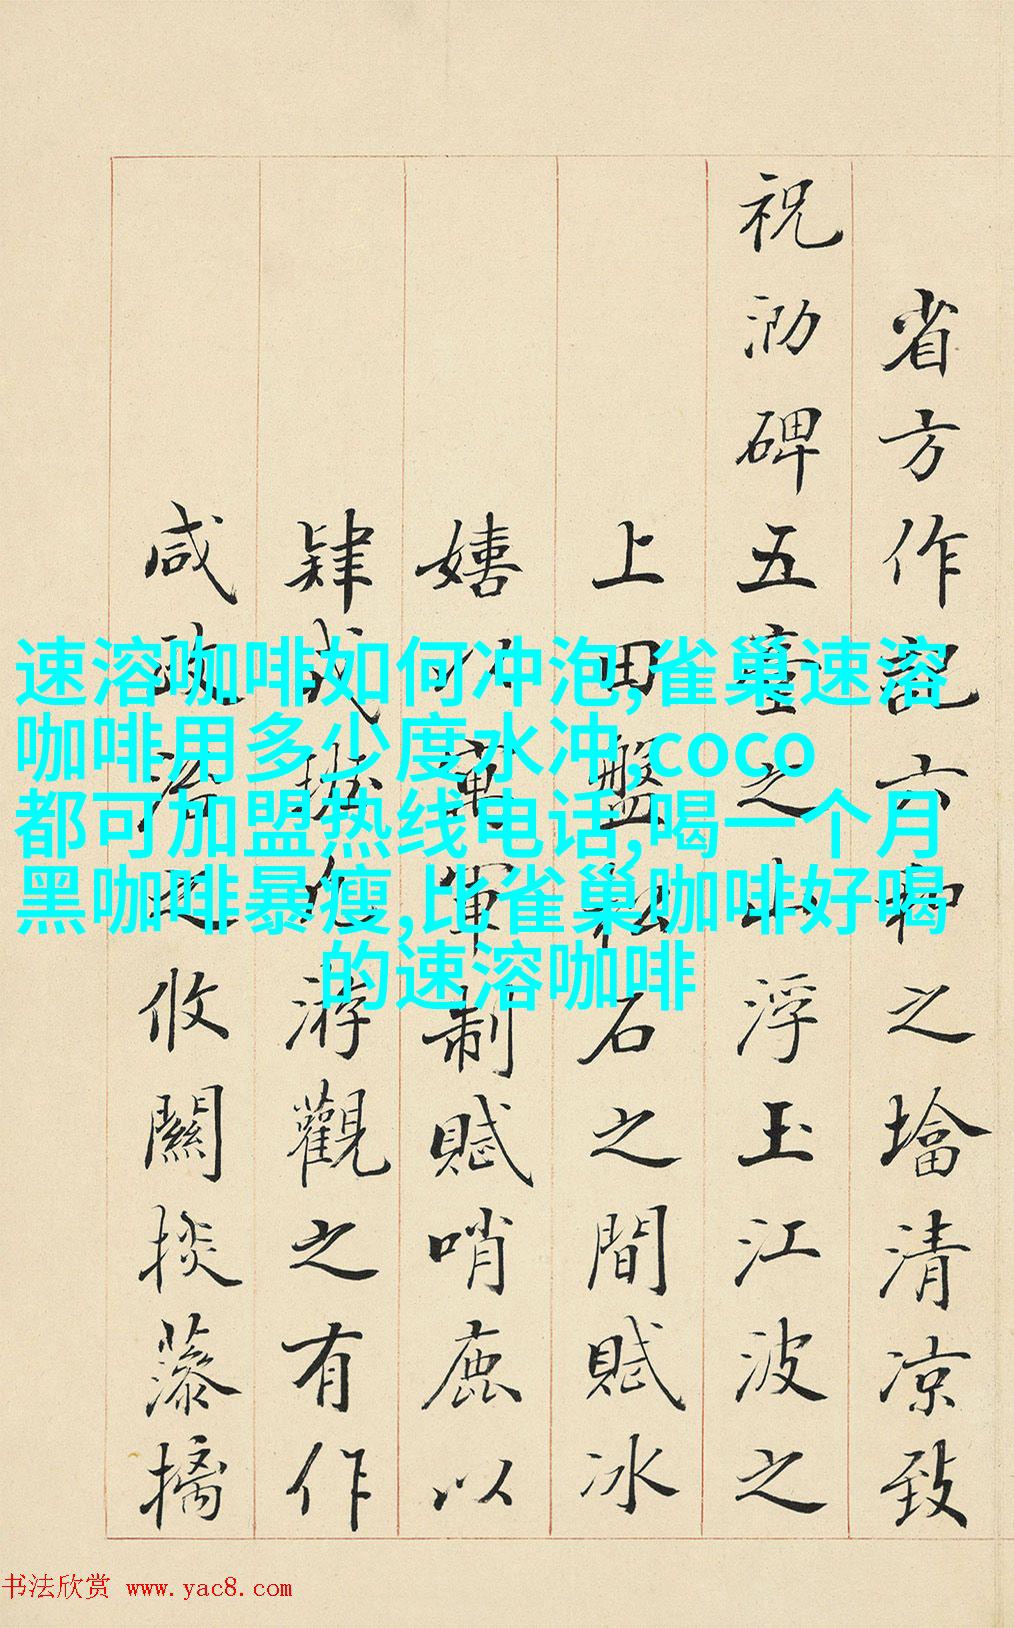 省方作記六和之墖清凉致
祝泐碑五臺之山浮玉江波之
上田盤松石之間賦冰
嬉以寓軍制賦哨鹿以
肄游觀之有作
咸攸關掞藻摛
速溶咖啡如何冲泡,雀巢速溶
咖啡用多少度水冲,coco
都可加盟热线电话,喝一个月
黑咖啡暴瘦,比雀巢咖啡好喝
的速溶咖啡
书法欣赏 www.yac8.com